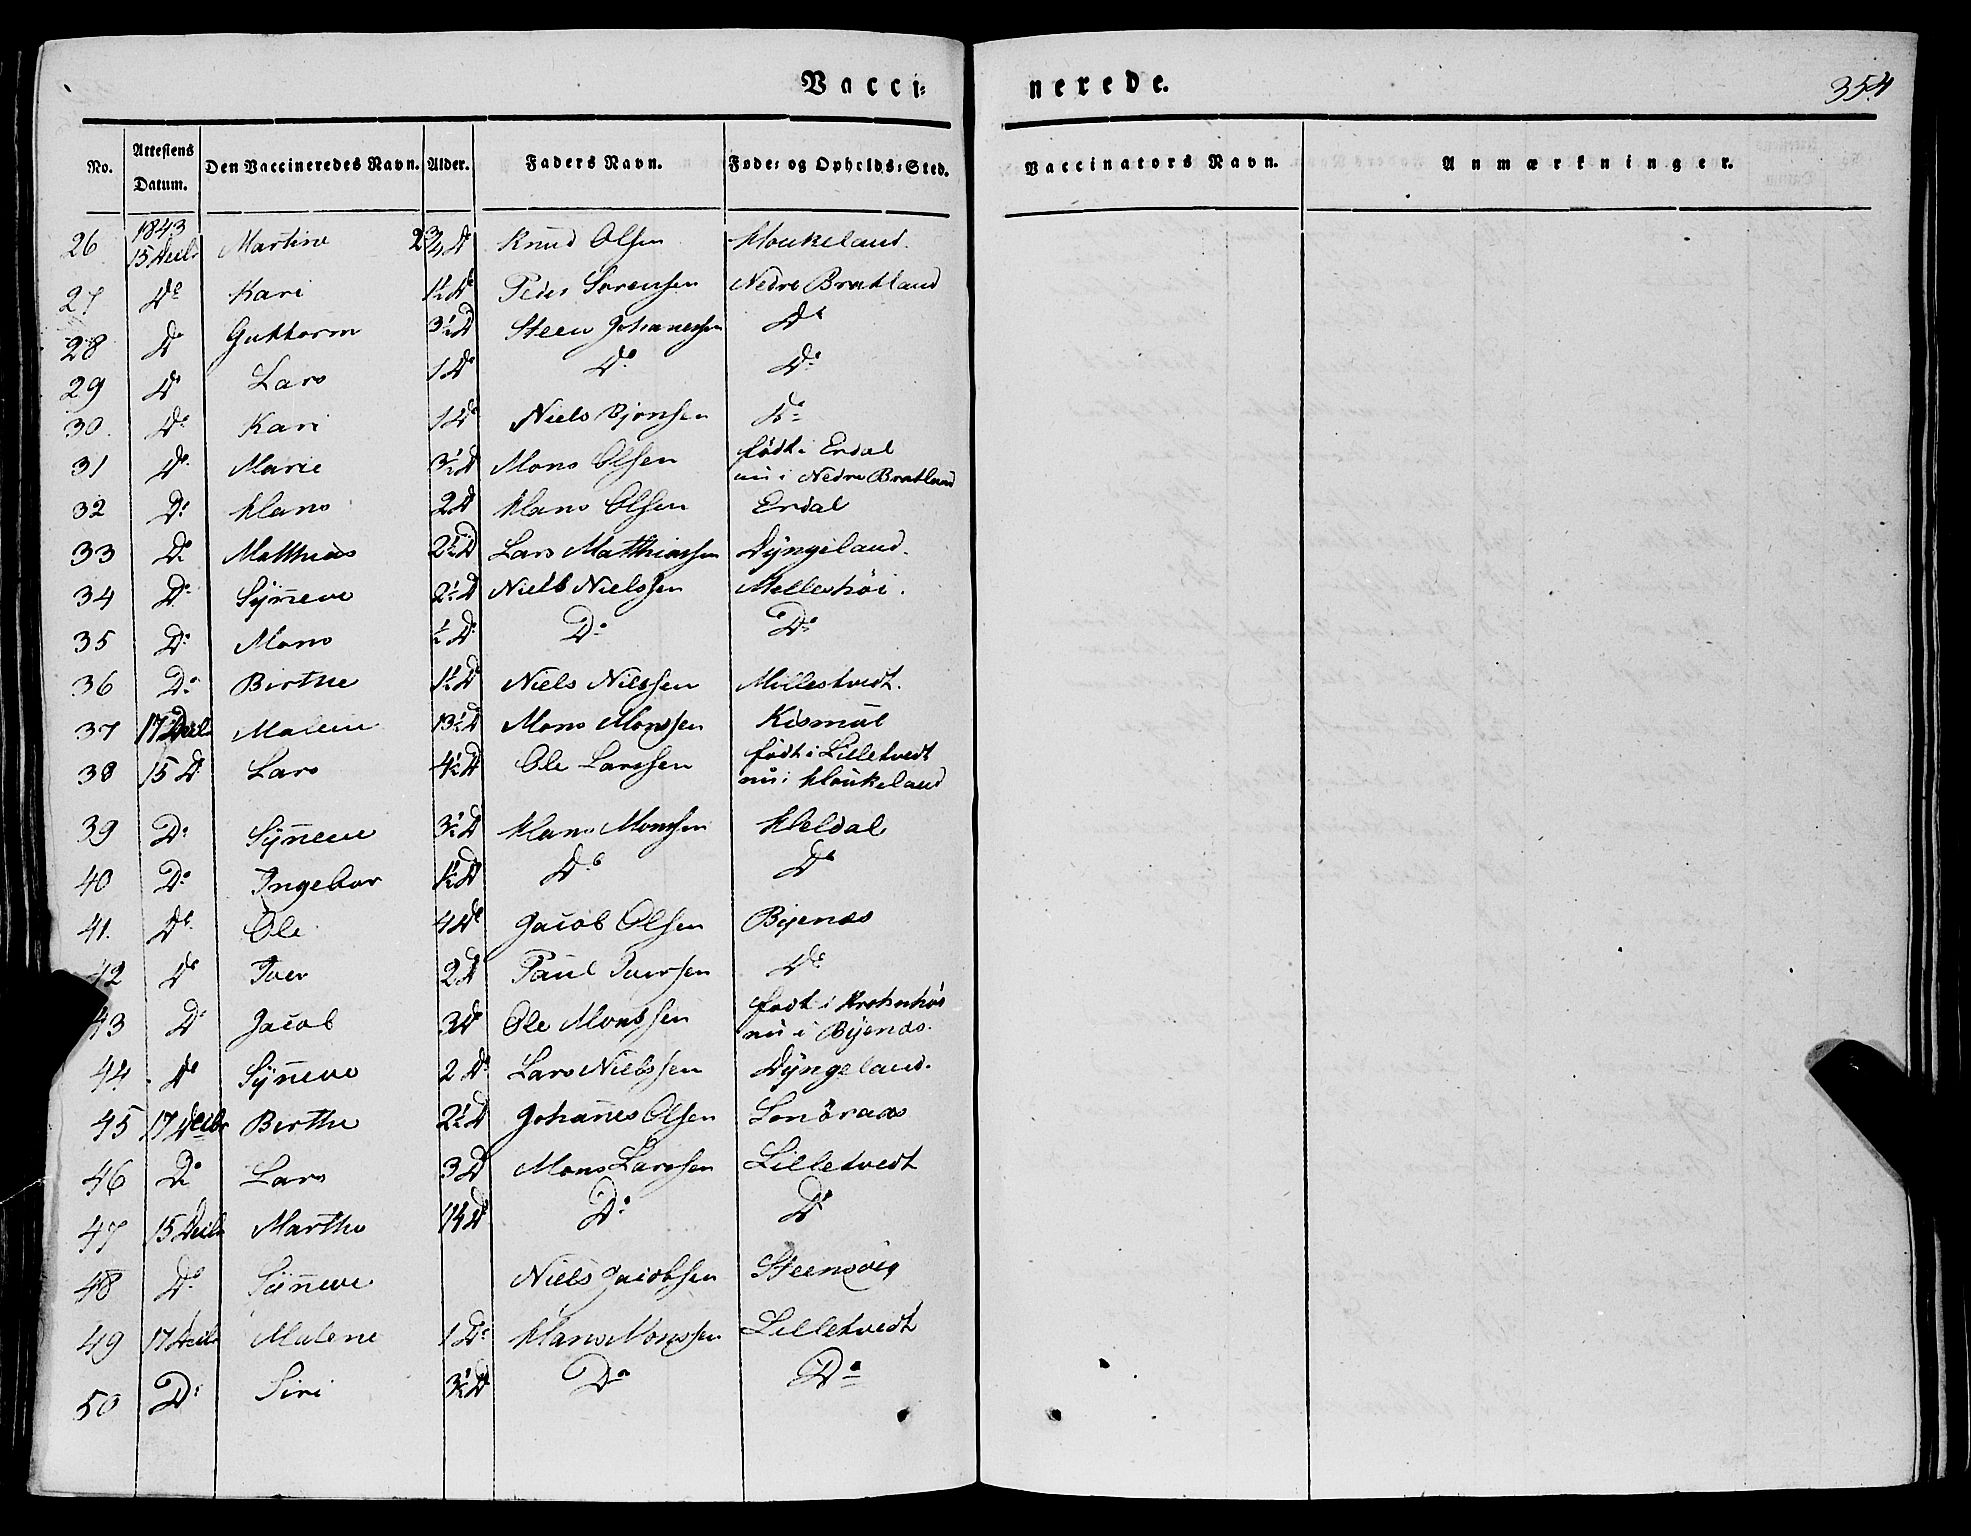 Vacci=
nerede.
354
No. Attestens Datum. Den Vaccineredes Navn. Alder. Faders Navn. Føde= og Opholds=Sted. Vaccinators Navn. Anmærkninger.
1843
26 15 Decbr Martine 2 3/4 D Knud Olsen Houkeland.
27 Do Kari 1½ Do Peder Sørensen Nedre Bratland
28 Do Guttorm 3½ D Steen Johanessen Do
29 Do Lars 1 Do Do Do
30. Do Kari 1 Do Niels Bjørnsen Do
31 Do Marie 3½ D Mons Olsen født i Erdal
nu i Nedre Bratland
32 Do Hans 2 D Hans Olsen Erdal
33 Do Matthias 2½ D Lars Mathiassen Dÿngeland.
34 Do Sÿñeve 2½ D Niels Nielssen Helleshöi.
35 Do Mons ½ Do Do Do
36 Do Birthe 1½ D Niels Nilssen Millestvedt.
37 17 Decbr Malene 13½ D Mons Monssen Kismül
38 15 D Lars 4½ D Ole Larssen født i Lilletvedt
nu i Houkeland
39 Do Sÿñeve 3½ D Hans Monssen Heldal
40 Do Ingebor 1½ D Do Do
41. Do Ole 4 Do Jacob Olsen Bijenæs
42 Do Iver 2 D Paul Iversen Do
43 Do Jacob 3 Do Ole Monssen født i
nu i Bijenæs.
44. Do Sÿñeve 2 Do Lars Nielssen Dÿngeland.
45 17 Decbr Berthe 2½ D Johañes Olsen
46 Do Lars 3 D Mons Larssen Lilletvedt
47 15 Decbr Marthe Do Do
48 Do Sÿñeve Niels Jacobsen Steensvig
49 17 Decbr Malene 1 Do Hans Monssen Lilletvedt
50 Do Siri 3½ D Do Do